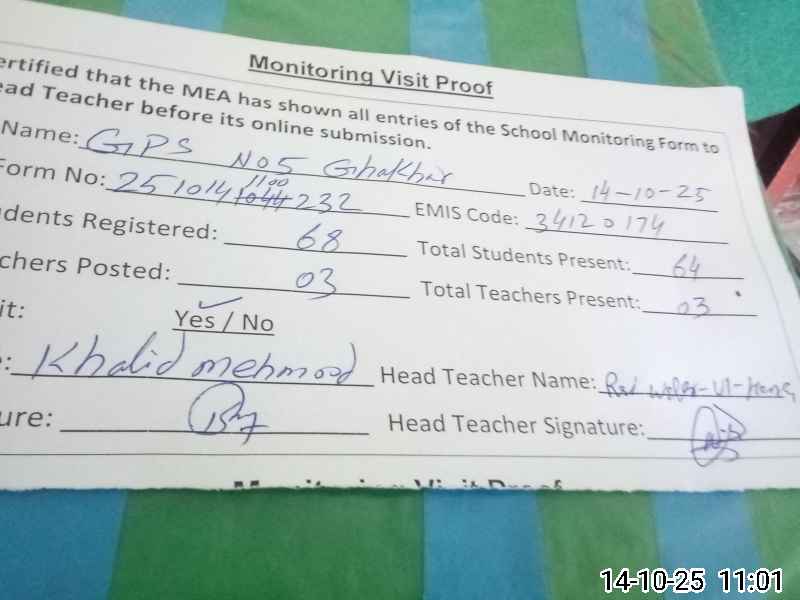 Monitoring Visit Proof
ertified that the MEA has shown all entries of the School Monitoring Form to
ead Teacher before its online submission.
Name: GPS NO5 Ghakhar Date: 14-10-25
Form No: 251014 1100 232 EMIS Code: 34120174
dents Registered: 68 Total Students Present: 64
chers Posted: 03 Total Teachers Present: 03
it: Yes / No
: Khalid mehmood Head Teacher Name:
ure: Head Teacher Signature:
14-10-25 11:01